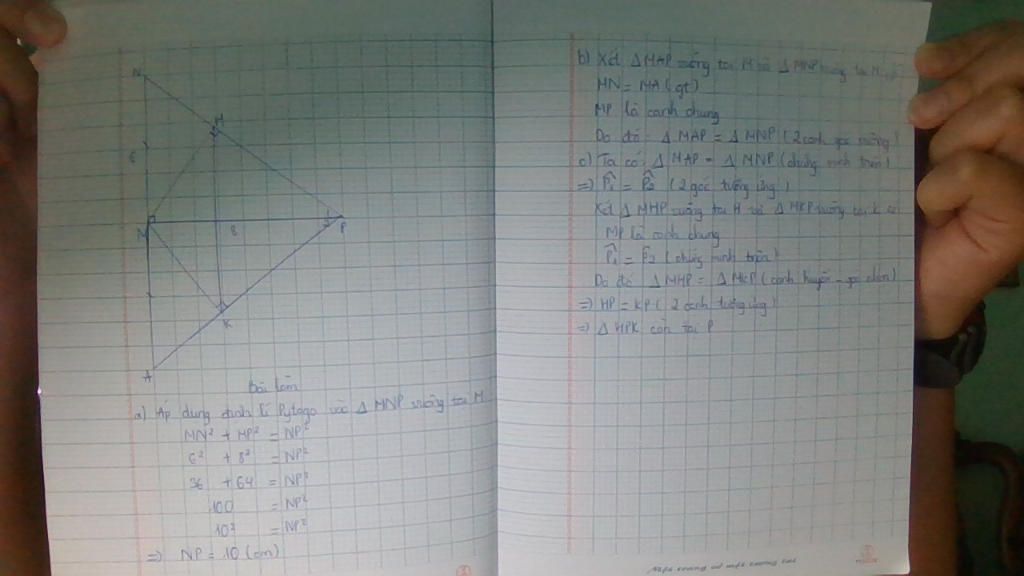 N
H
6
M
8
P
K
A
Bài làm
a) Áp dụng định lí Pytago vào Δ MNP vuông tại M
MN² + MP² = NP²
6² + 8² = NP²
36 + 64 = NP²
100 = NP²
10² = NP²
=> NP = 10 (cm)
b) Xét Δ MAP vuông tại M và Δ MNP vuông tại M
MN = MA (gt)
MP là cạnh chung
Do đó: Δ MAP = Δ MNP (2 cạnh góc vuông)
c) Ta có: Δ MAP = Δ MNP (chứng minh trên)
=> P̂₁ = P̂₂ (2 góc tương ứng)
Xét Δ MHP vuông tại H và Δ MKP vuông tại K có
MP là cạnh chung
P̂₁ = P̂₂ (chứng minh trên)
Do đó Δ MHP = Δ MKP (cạnh huyền - góc nhọn)
=> HP = KP (2 cạnh tương ứng)
=> Δ HPK cân tại P